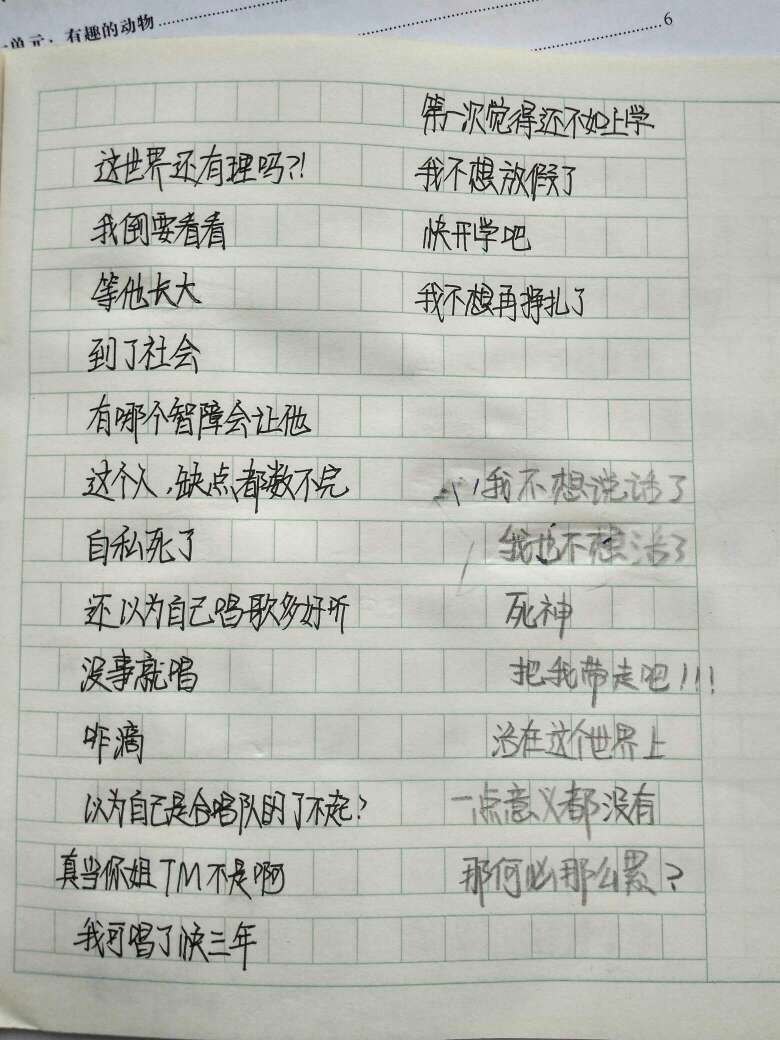 单元：有趣的动物 6
这世界还有理吗？！
我倒要看看
等他长大
到了社会
有哪个智障会让他
这个人，缺点都数不完
自私死了
还以为自己唱歌多好听
没事就唱
咋滴
以为自己是合唱队的了不起？
真当你姐TM不是啊
我可唱了快三年
第一次觉得还不如上学
我不想放假了
快开学吧
我不想再挣扎了
我不想说话了
我也不想活了
死神
把我带走吧！！！
活在这个世界上
一点意义都没有
那何必那么累？